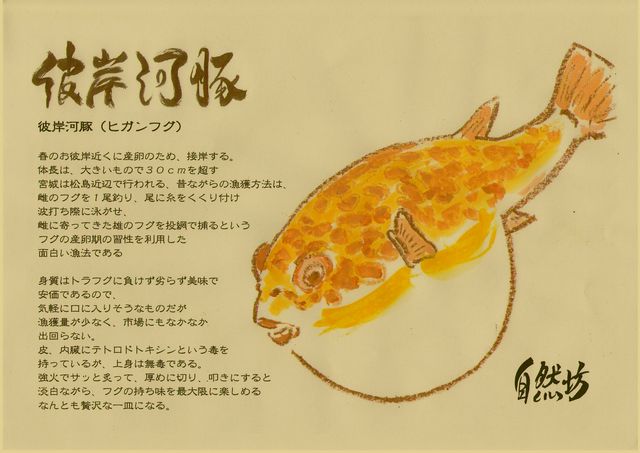 彼岸河豚
彼岸河豚（ヒガンフグ）
春のお彼岸近くに産卵のため、接岸する。
体長は、大きいもので３０ｃｍを超す
宮城は松島近辺で行われる、昔ながらの漁獲方法は、
雌のフグを１尾釣り、尾に糸をくくり付け
波打ち際に泳がせ、
雌に寄ってきた雄のフグを投網で捕るという
フグの産卵期の習性を利用した
面白い漁法である
身質はトラフグに負けず劣らず美味で
安価であるので、
気軽に口に入りそうなものだが
漁獲量が少なく、市場にもなかなか
出回らない。
皮、内臓にテトロドトキシンという毒を
持っているが、上身は無毒である。
強火でサッと炙って、厚めに切り、叩きにすると
淡白ながら、フグの持ち味を最大限に楽しめる
なんとも贅沢な一皿になる。
自然坊